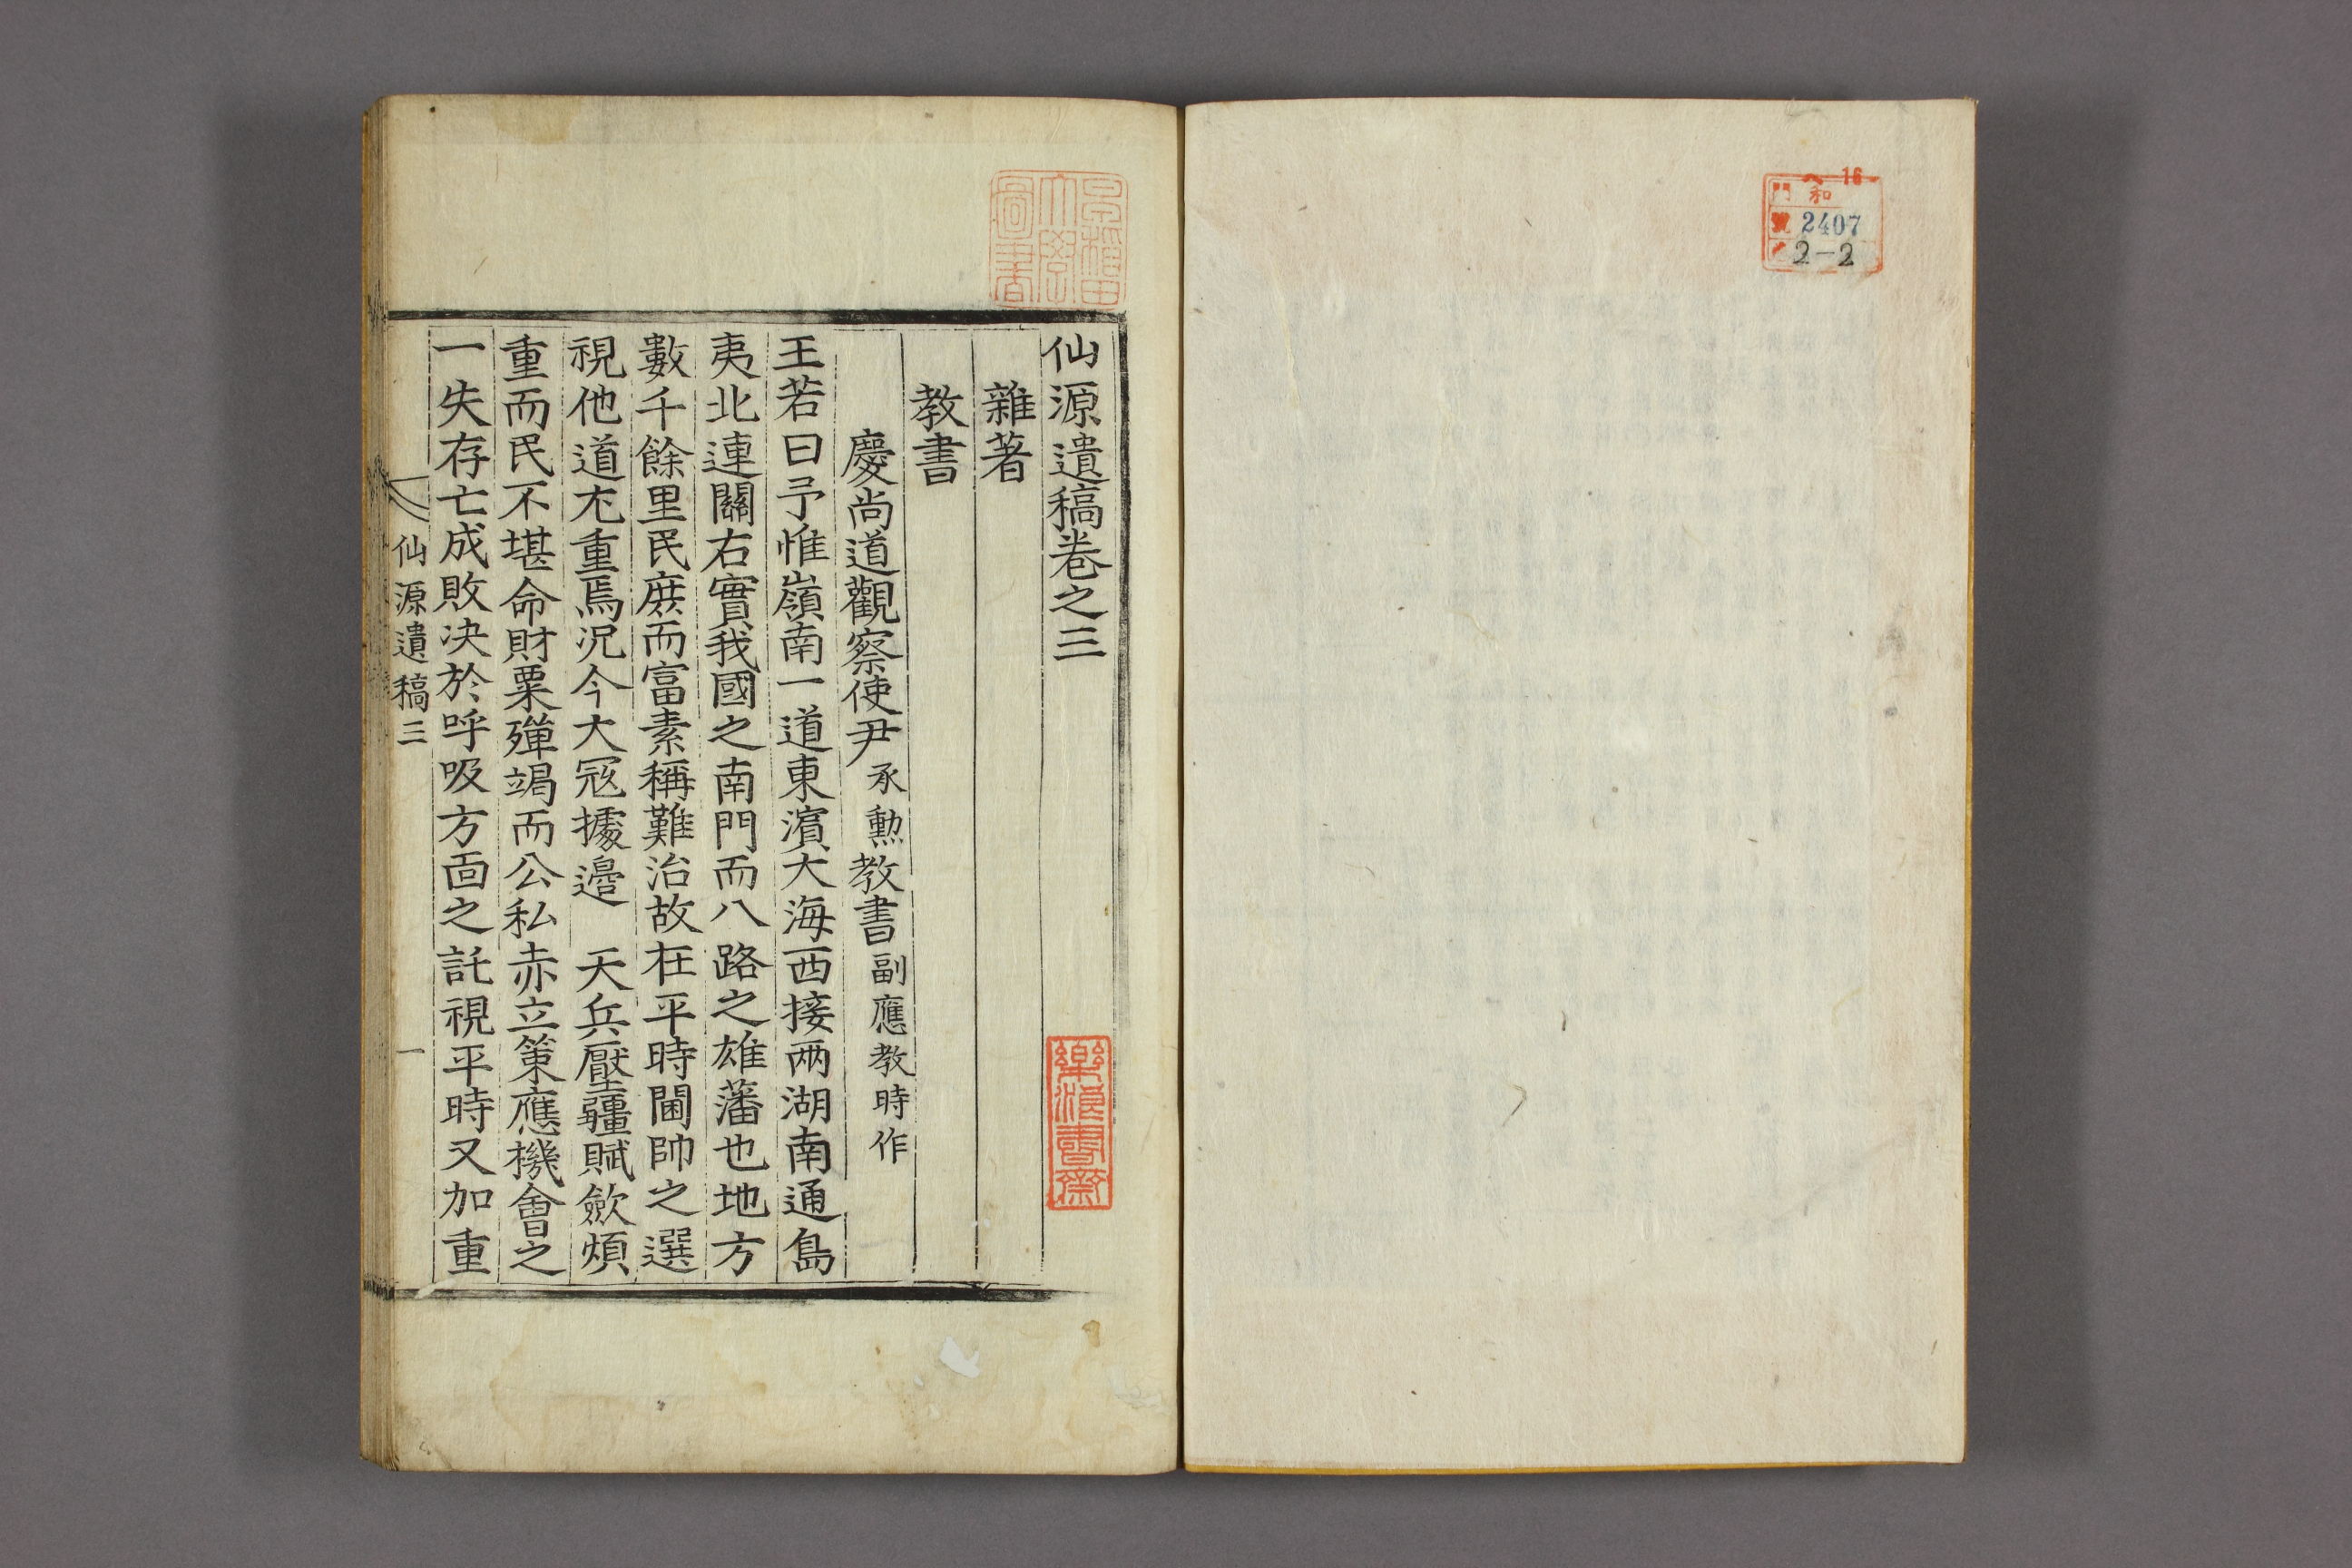 ヘ16
門 和
號 2407
2-2
早稲田大學圖書
仙源遺稿卷之三
樂浪書齋
雜著
教書
慶尚道觀察使尹承勳教書副應教時作
王若曰予惟嶺南一道東濱大海西接兩湖南通島
夷北連關右實我國之南門而八路之雄藩也地方
數千餘里民庶而富素稱難治故在平時閫帥之選
視他道尤重焉況今大冦據邊 天兵壓疆賦斂煩
重而民不堪命財粟殫竭而公私赤立策應機會之
一失存亡成敗决於呼吸方面之託視平時又加重
仙源遺稿三 一